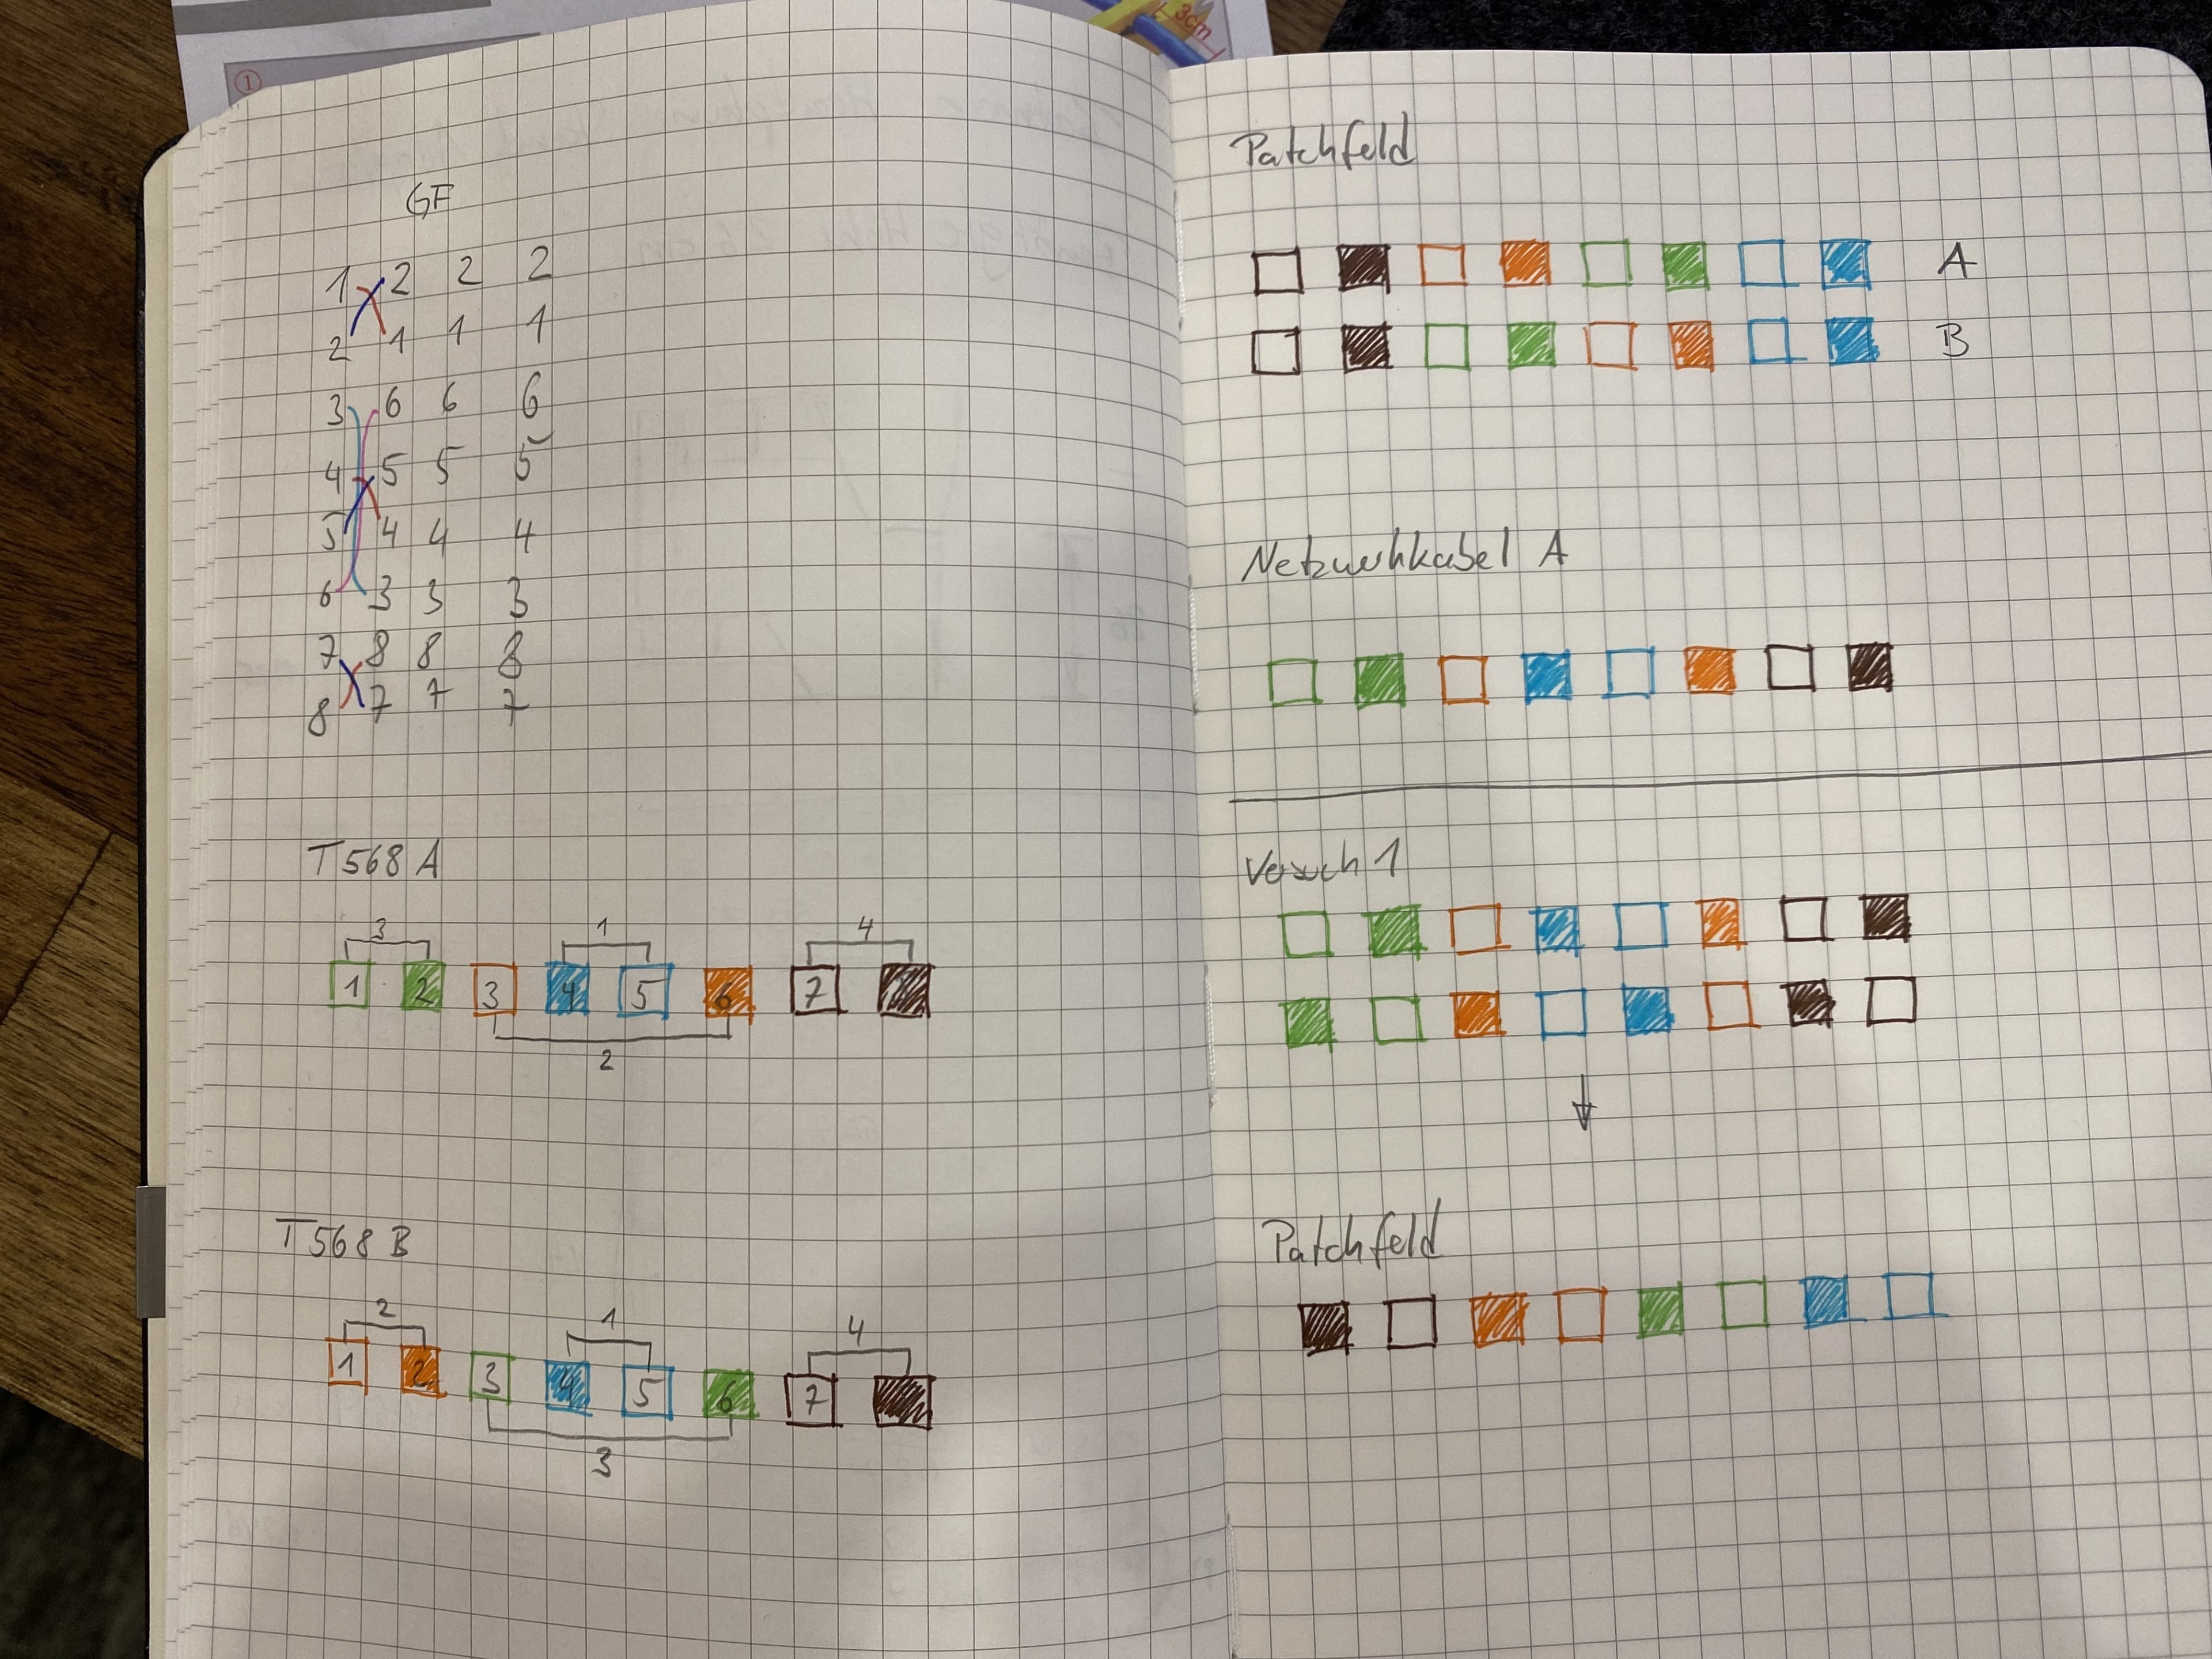 ①
3cm
GF
1 2 2 2
2 1 1 1
3 6 6 6
4 5 5 5
5 4 4 4
6 3 3 3
7 8 8 8
8 7 7 7
T568 A
3 1 4
1 2 3 4 5 6 7
2
T568 B
2 1 4
1 2 3 4 5 6 7
3
Patchfeld
A
B
Netzwerkkabel A
Versuch 1
Patchfeld